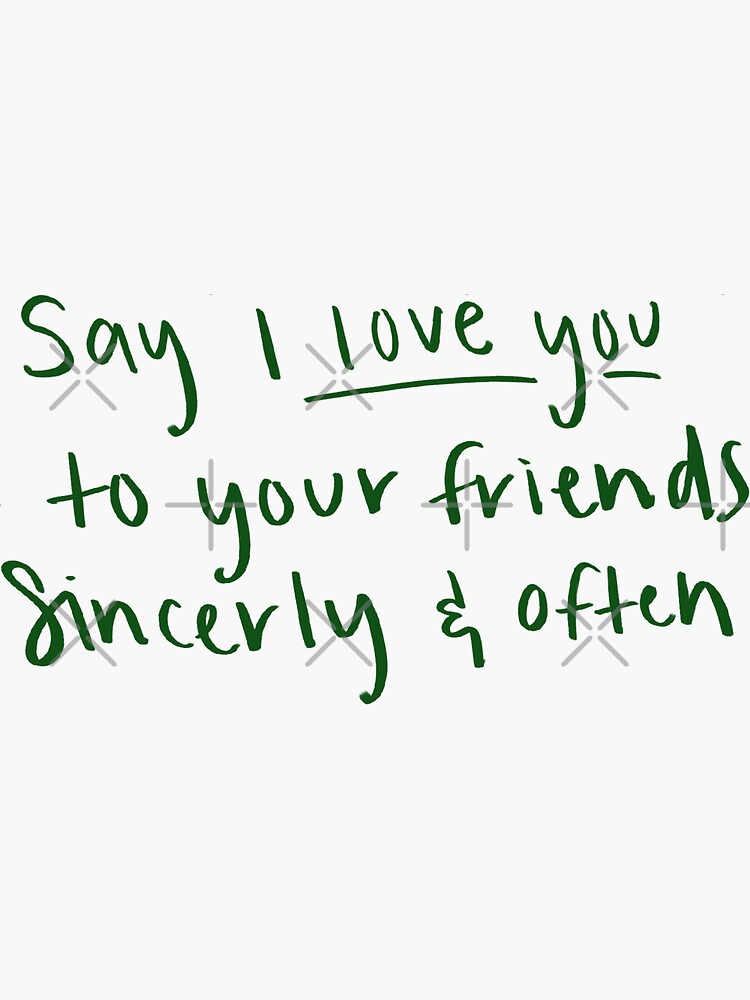 Say I love you
to your friends
Sincerly & often